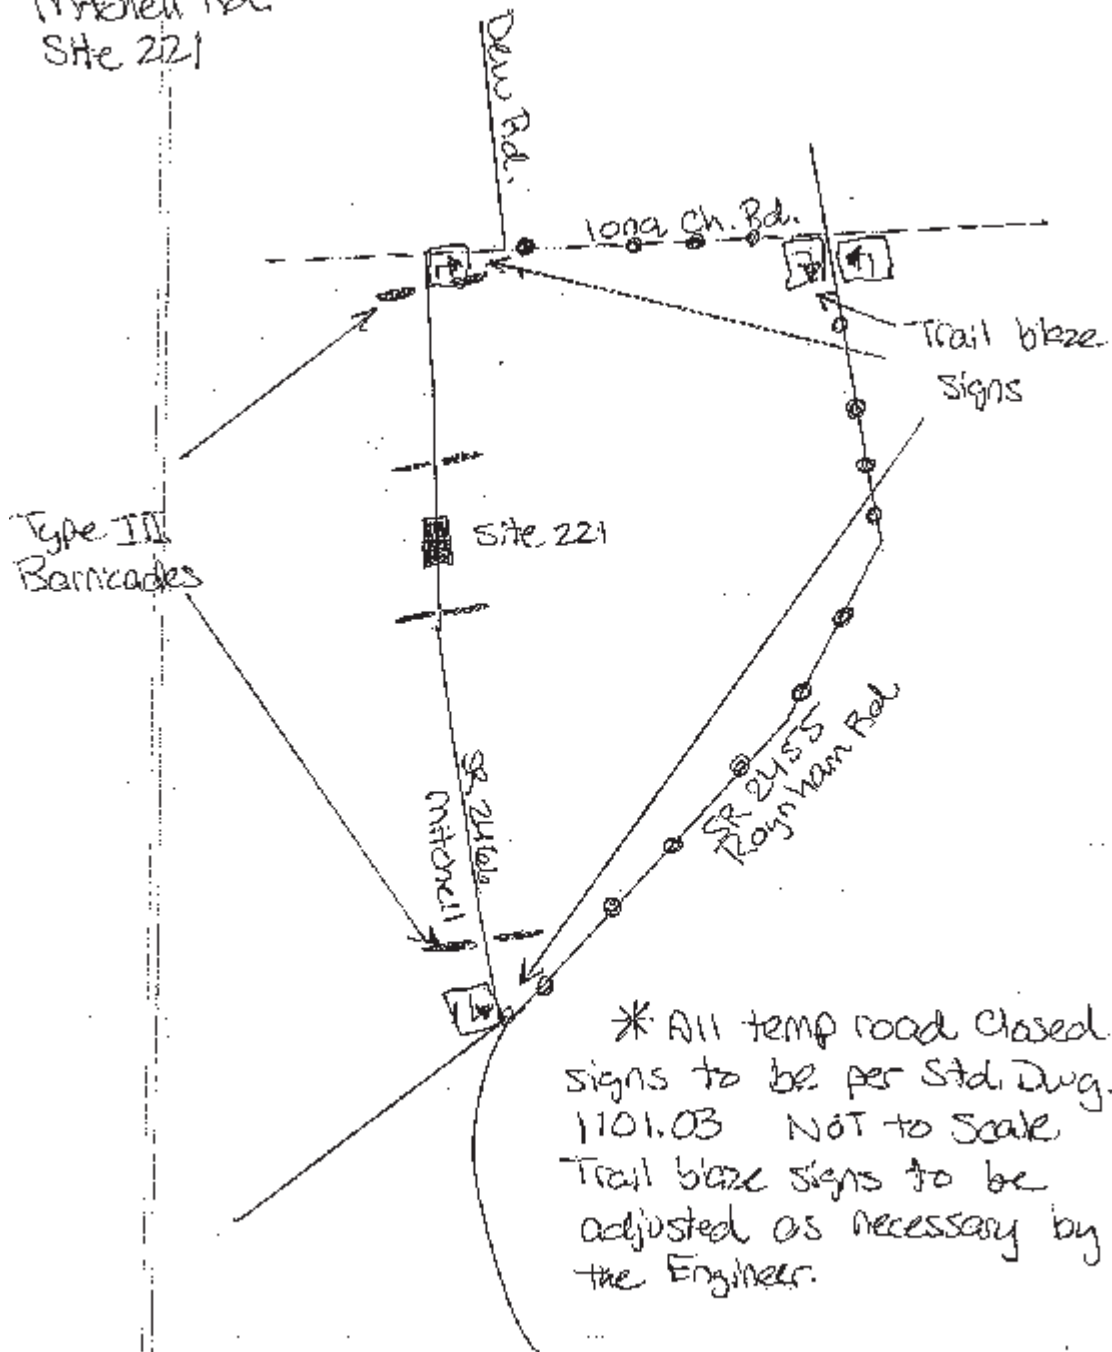 Mitchell Rd.
Site 221
Dew Rd.
Iona Ch. Rd.
Trail blaze
signs
Type III
Barricades
Site 221
SR 2466
Mitchell
SR 2455
Raynham Rd
* All temp road Closed
signs to be per Std. Dwg.
1101.03 NOT to Scale
Trail blaze signs to be
adjusted as necessary by
the Engineer.